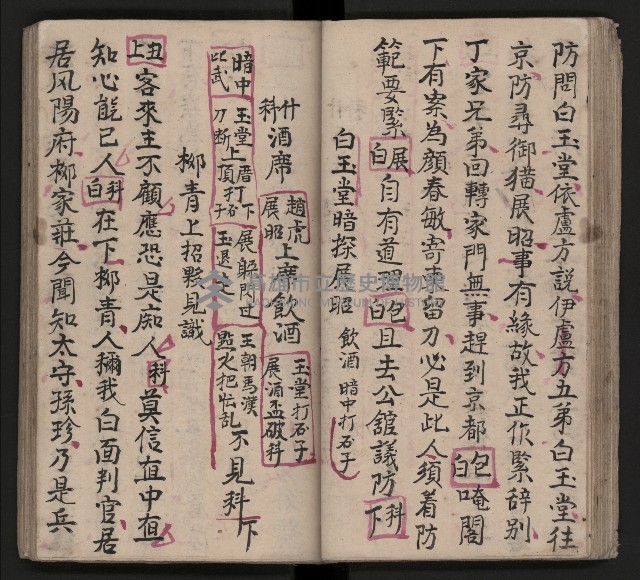 防問白玉堂依盧方説伊盧方五弟白玉堂往
京防尋御猫展昭事有緣故我正作緊辞別
丁家兄弟回轉家門無事趕到京都 包白 唵閣
下有案為顔春敏寄柬留刀必是此人須着防
範要緊 展白 自有道理 包白 且去公舘議防 科下
白玉堂暗探展昭 飲酒 暗中打石子
什科 酒席 趙虎展昭 上席飲酒 玉堂打石子展酒盃破科
暗中比武 玉堂上厝頂打石子 下展躲閃过 王朝馬漢 不見科下
柳青上招夥見識
丑上 客來主不顧應恐是痴人 科 莫信直中直
知心能已人 科白 在下柳青人稱我白面判官居
居风陽府柳家莊今聞知太守孫珍乃是兵
高雄市立歷史博物館